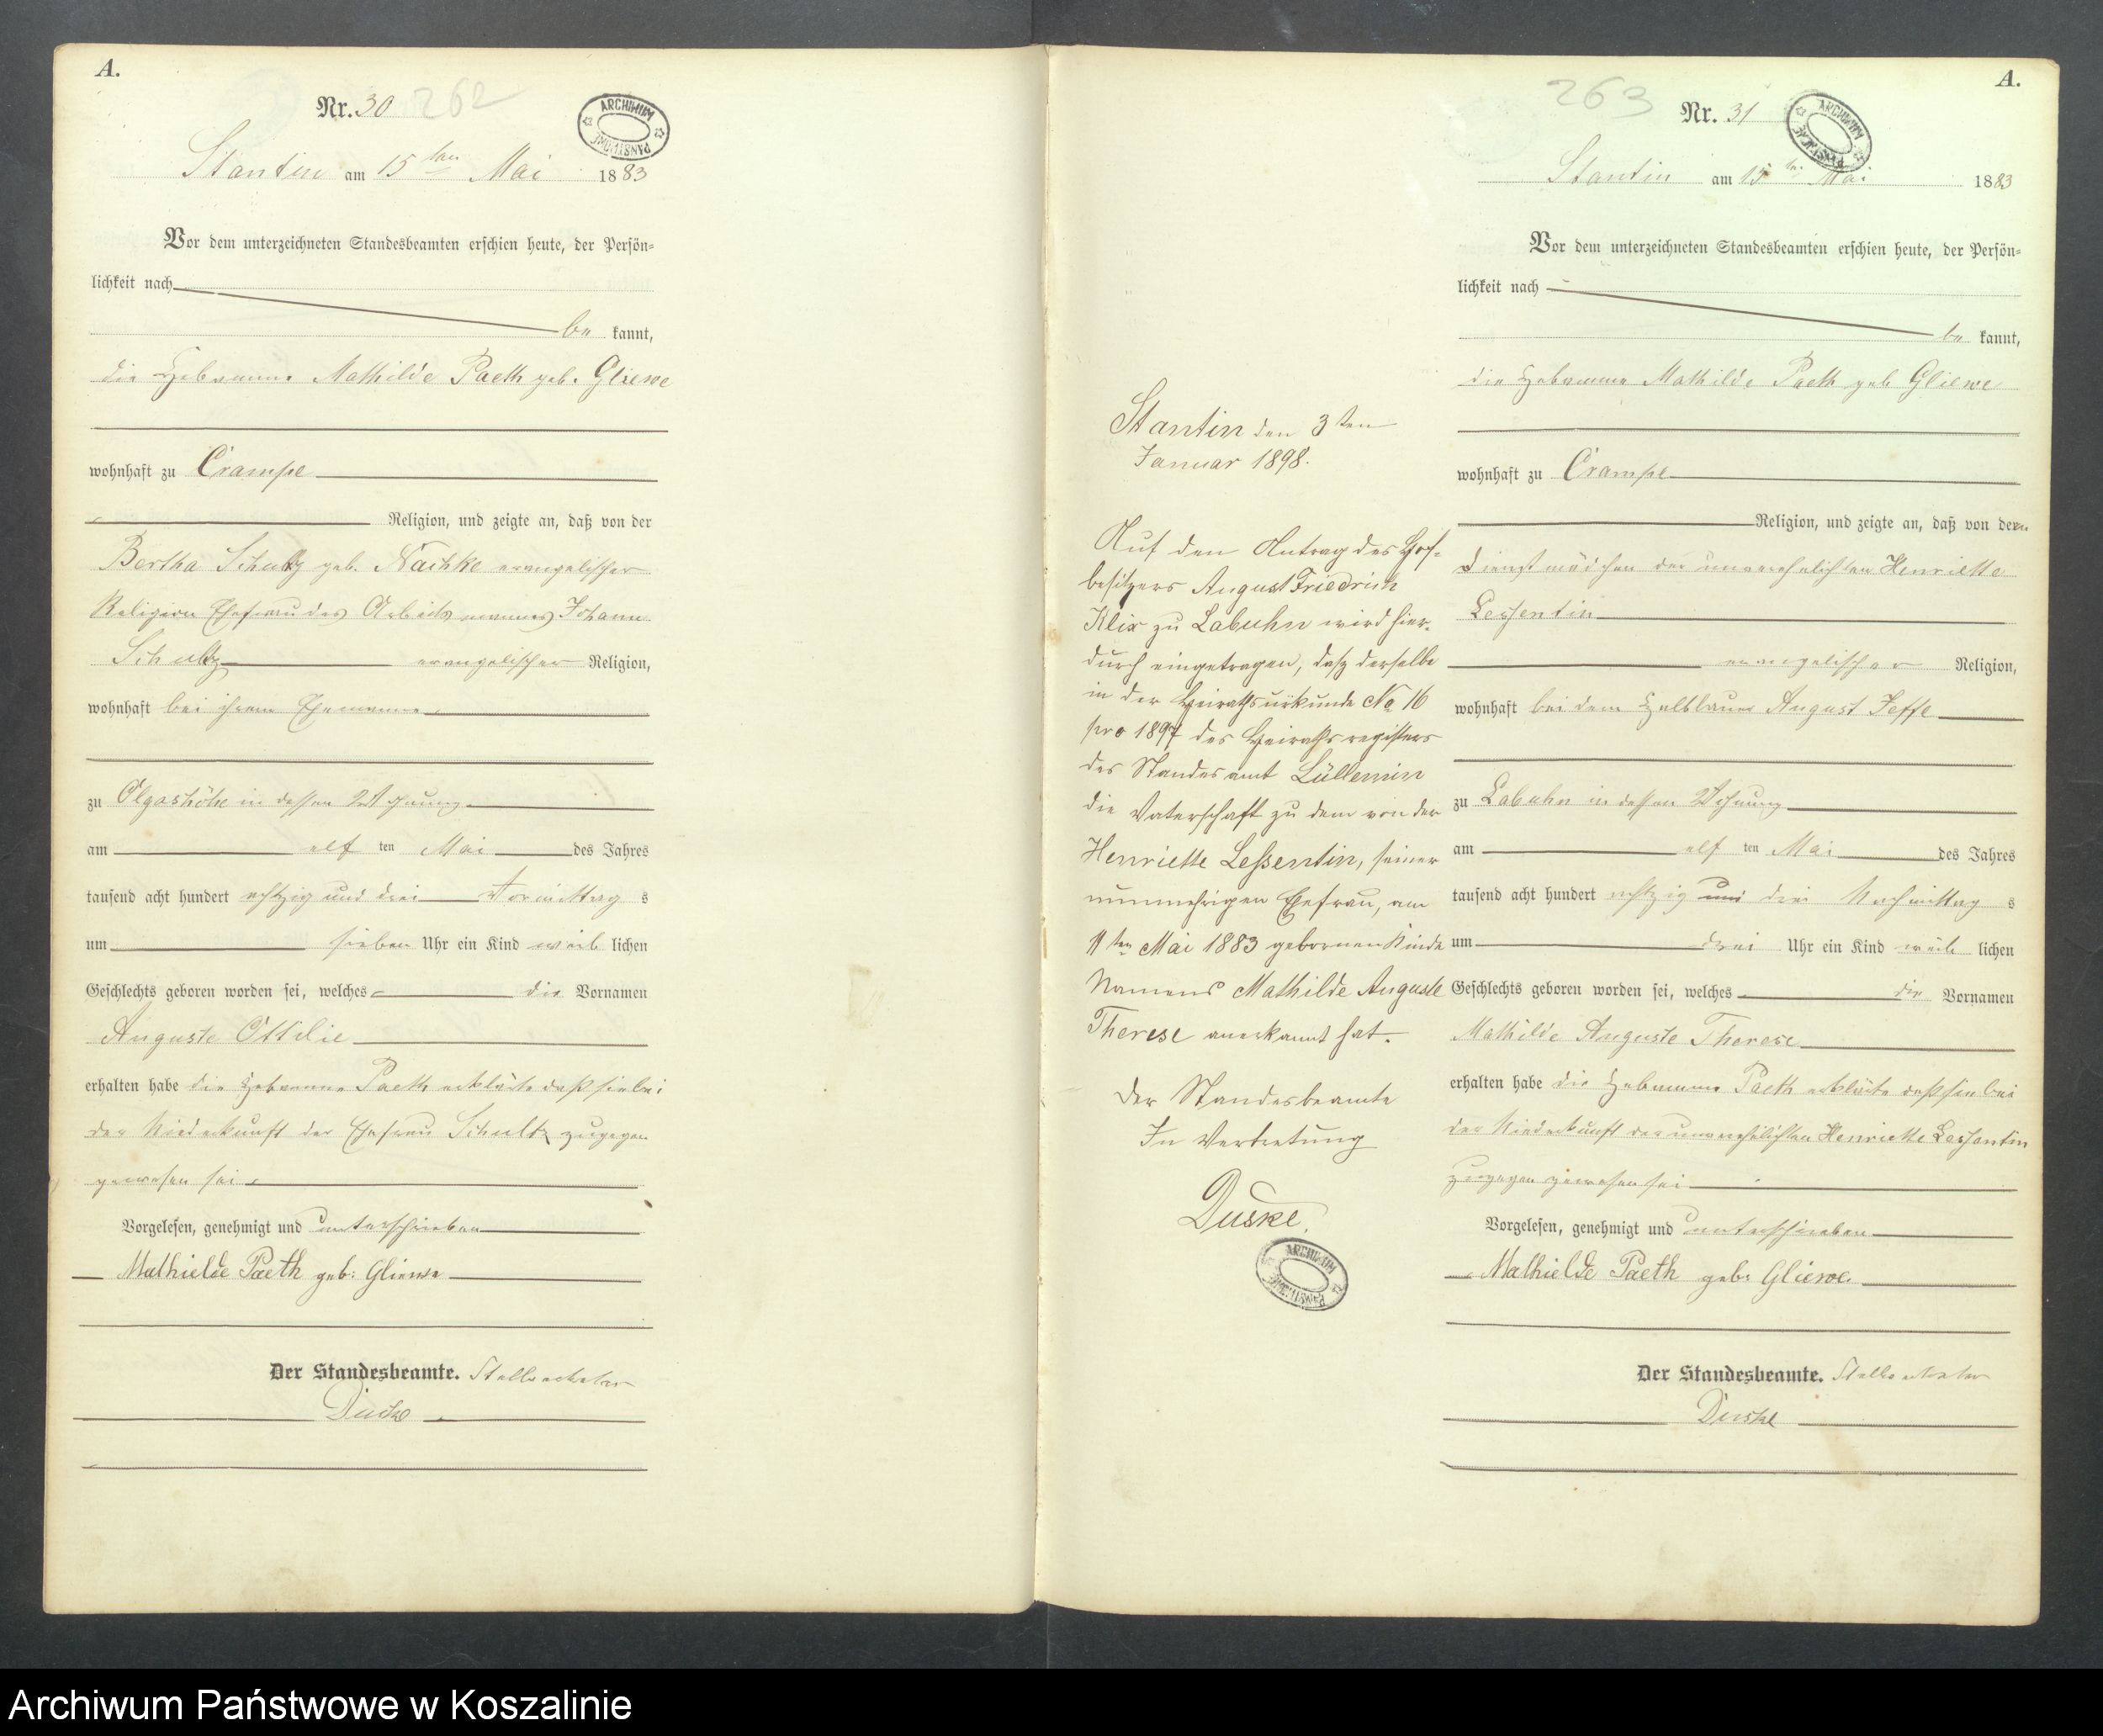 A.
Nr. 30 262
ARCHIWUM PAŃSTWOWE
Stantin am 15ten Mai 1883
Vor dem unterzeichneten Standesbeamten erschien heute, der Persön-
lichkeit nach
be kannt,
die Hebamme Mathilde Paeth geb. Gliewe
wohnhaft zu Crampe
Religion, und zeigte an, daß von der
Bertha Schultz geb. Naschke evangelischer
Religion Ehefrau des Arbeitsmannes Johann
Schultz evangelischer Religion,
wohnhaft bei ihrem Ehemanne
zu Olgashöhe in dessen Wohnung
am elf ten Mai des Jahres
tausend acht hundert achtzig und drei Vormittag s
um sieben Uhr ein Kind weib lichen
Geschlechts geboren worden sei, welches die Vornamen
Auguste Ottilie
erhalten habe die Hebamme Paeth erklärte daß sie bei
der Niederkunft der Ehefrau Schultz zugegen
gewesen sei.
Vorgelesen, genehmigt und unterschrieben
Mathielde Paeth geb: Gliewe
Der Standesbeamte. Stellvertreter
Duske
Stantin den 3ten
Januar 1898.
Auf den Antrag des Hof-
besitzers August Friedrich
Klix zu Labuhn wird hier-
durch eingetragen, daß derselbe
in der Heirathsurkunde No 16
pro 1897 des Heirathsregisters
des Standesamt Lüllemin
die Vaterschaft zu dem von der
Henriette Lessentin, seiner
nunmehrigen Ehefrau, am
11ten Mai 1883 gebornen Kinde
Namens Mathilde Auguste
Therese anerkannt hat.
Der Standesbeamte
In Vertretung
Duske.
ARCHIWUM PAŃSTWOWE
A.
263 Nr. 31
ARCHIWUM PAŃSTWOWE
Stantin am 15ten Mai 1883
Vor dem unterzeichneten Standesbeamten erschien heute, der Persön-
lichkeit nach
be kannt,
die Hebamme Mathilde Paeth geb Gliewe
wohnhaft zu Crampe
Religion, und zeigte an, daß von dem
Dienstmädchen der unverehelichten Henriette
Lessentin
evangelischer Religion,
wohnhaft bei dem Halbbauer August Jeffe
zu Labuhn in dessen Wohnung
am elf ten Mai des Jahres
tausend acht hundert achtzig und drei Nachmittag s
um drei Uhr ein Kind weib lichen
Geschlechts geboren worden sei, welches die Vornamen
Mathilde Auguste Therese
erhalten habe die Hebamme Paeth erklärte daß sie bei
der Niederkunft der unverehelichten Henriette Lessentin
zugegen gewesen sei
Vorgelesen, genehmigt und unterschrieben
Mathielde Paeth geb: Gliewe.
Der Standesbeamte. Stellvertreter
Duske
Archiwum Państwowe w Koszalinie